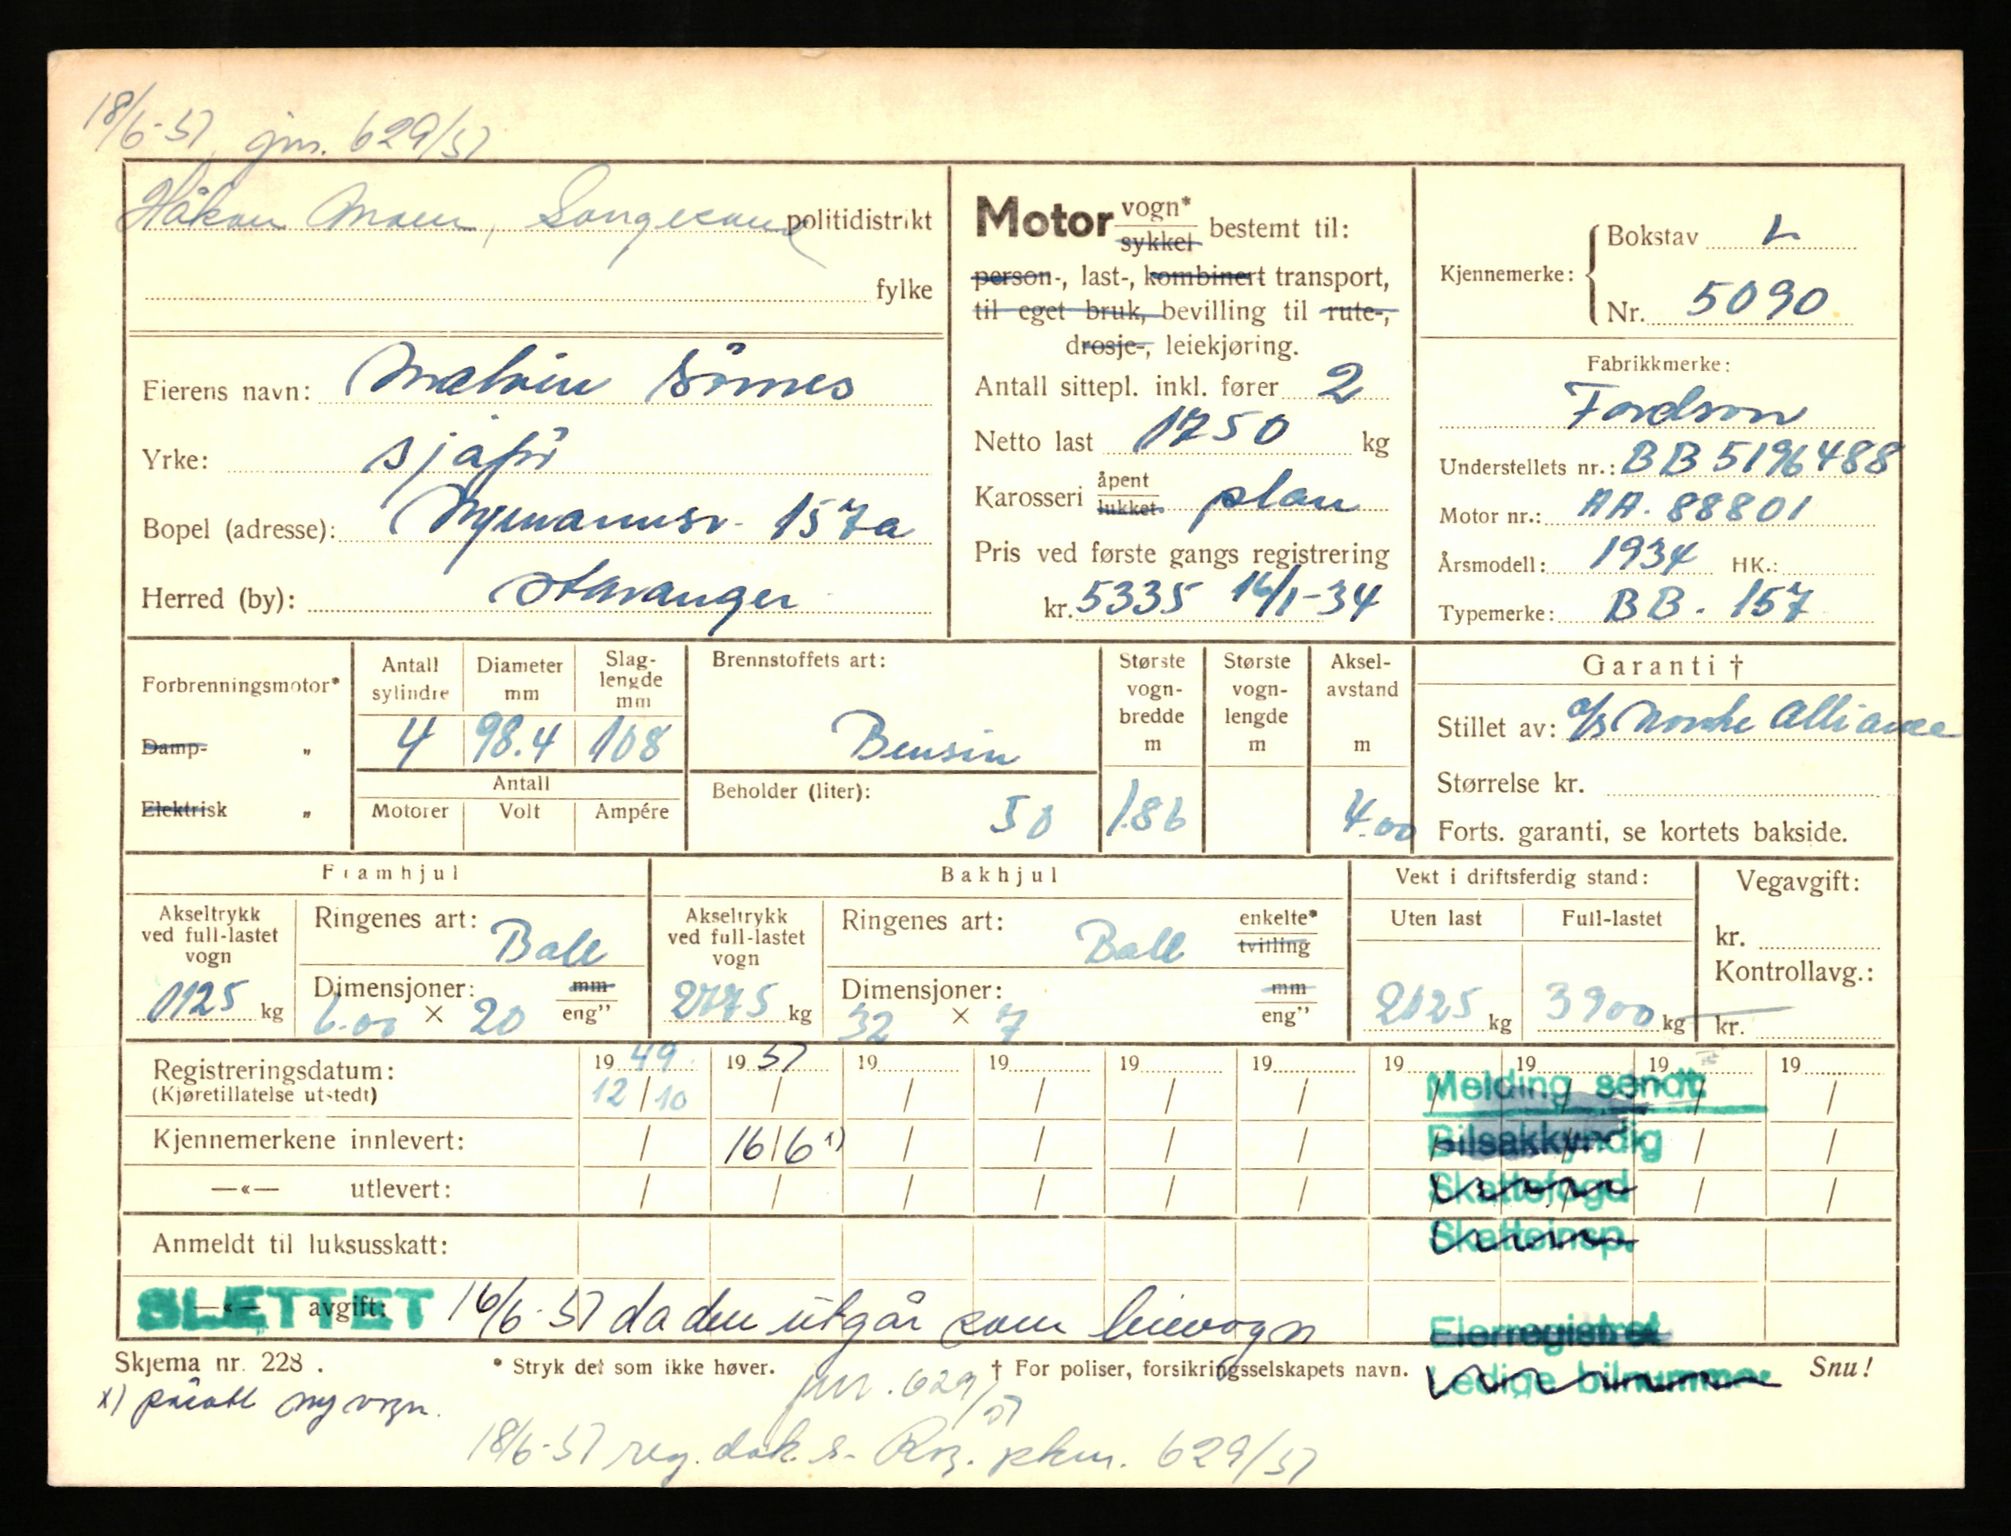 18/6-57 jnr. 629/57
Håkon Moen, politidistrikt
fylke
Eierens navn: Melvin Sömes
Yrke: sjåfør
Bopel (adresse): 157a
Herred (by): Stavanger
Motor vogn* sykkel bestemt til:
person-, last-, kombinert transport,
til eget bruk, bevilling til rute-,
drosje-, leiekjøring.
Antall sittepl. inkl. fører 2
Netto last 1750 kg
Karosseri åpent lukket. plan
Pris ved første gangs registrering
kr. 5335 16/1-34
Kjennemerke: Bokstav L
Nr. 5090
Fabrikkmerke:
Fordson
Understellets nr.: BB 5196488
Motor nr.: AA. 88801
Årsmodell: 1934 HK.:
Typemerke: BB. 157
Forbrenningsmotor*
Damp- „
Elektrisk „
Antall sylindre Diameter mm Slag-lengde mm
4 98.4 108
Antall
Motorer Volt Ampére
Brennstoffets art:
Bensin
Beholder (liter):
50
Største vogn-bredde m
1.86
Største vogn-lengde m
Aksel-avstand m
4.00
Garanti †
Stillet av: a/s Norske Alliance
Størrelse kr.
Forts. garanti, se kortets bakside.
Framhjul
Akseltrykk ved full-lastet vogn
1125 kg
Ringenes art: Ball
Dimensjoner: mm
6.00 × 20 eng"
Bakhjul
Akseltrykk ved full-lastet vogn
2775 kg
Ringenes art: Ball enkelte* tvilling
Dimensjoner: mm
32 × 7 eng"
Vekt i driftsferdig stand:
Uten last Full-lastet
2125 kg 3900 kg
Vegavgift:
kr.
Kontrollavg.:
kr.
Registreringsdatum: 19 49 19 57 19 19 19 19 19 19 19 19
(Kjøretillatelse utstedt) 12/10 / / / / / / / / /
Kjennemerkene innlevert: / 16/6 1) / / / / / / / /
—«— utlevert: / / / / / / / / / /
Anmeldt til luksusskatt:
—«— avgift:
SLETTET 16/6-57 da den utgår som leievogn
Melding sendt
Bilsakkyndig
Skattefogd
Skatteinsp.
Eierregistret
Ledige bilnummer
Skjema nr. 228.
* Stryk det som ikke høver.
† For poliser, forsikringsselskapets navn.
Snu!
x) påsatt ny vogn.
jnr. 629/57
18/6-57 reg. dok. s. pkm. 629/57